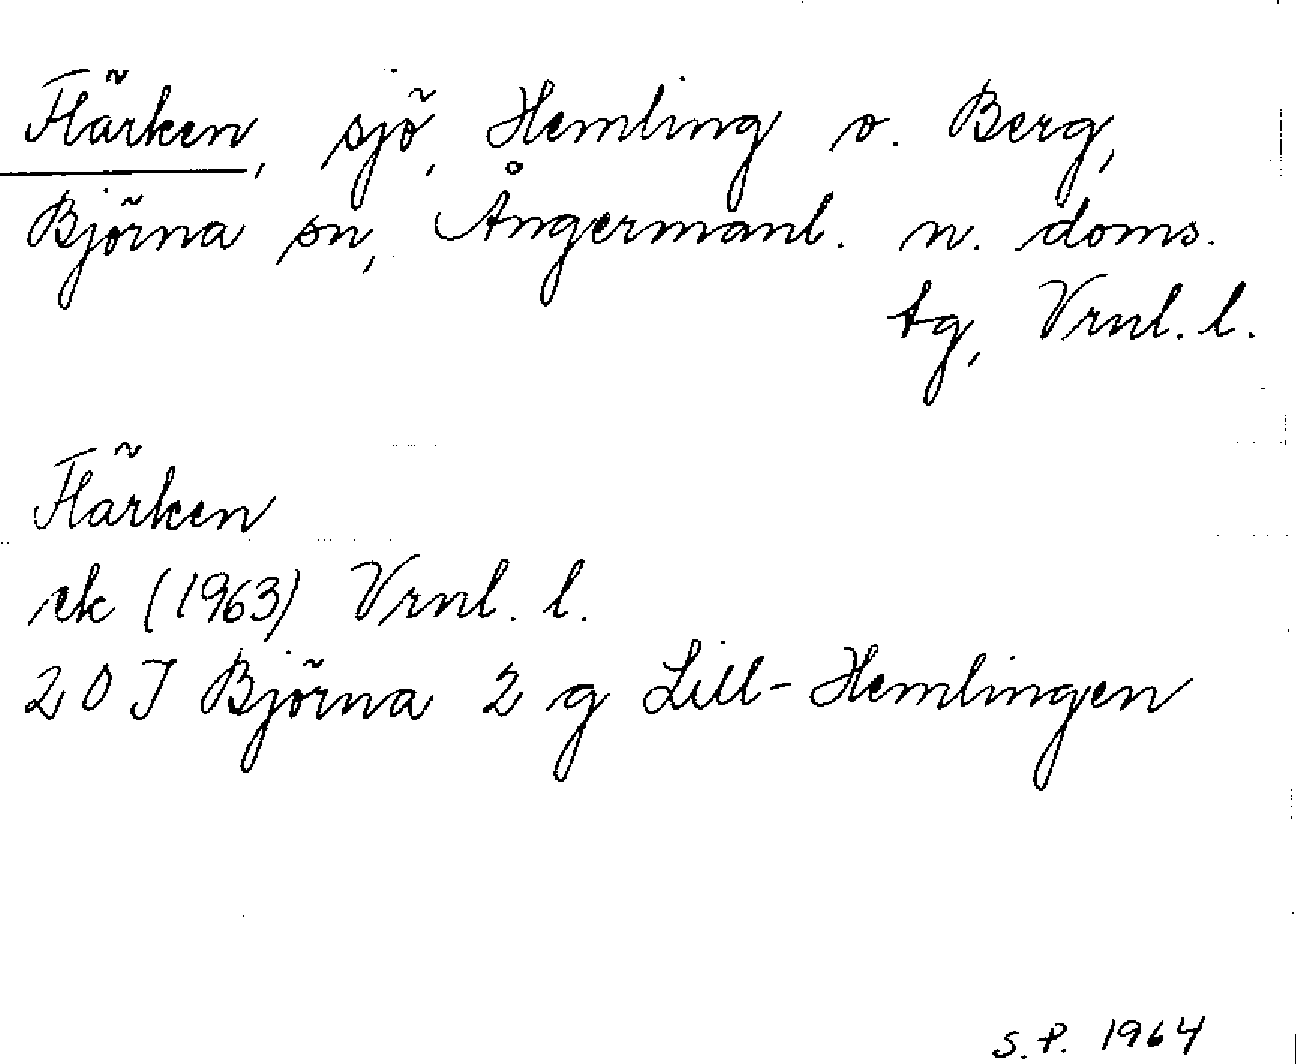 Flärken, sjö, Hemling o. Berg,
Björna sn, Ångermanl. n. doms.
tg, Vrnl. l.
Flärken
ek (1963) Vrnl. l.
20 J Björna 2 g Lill-Hemlingen
S.P. 1964